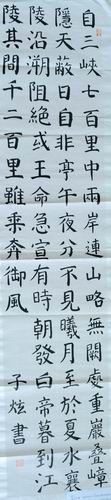 自三峽七百里中兩岸連山略無闕處重巖疊嶂
隱天蔽日自非亭午夜分不見曦月至於夏水襄
陵沿溯阻絶或王命急宣有時朝發白帝暮到江
陵其間千二百里雖乘奔御風
子炫書